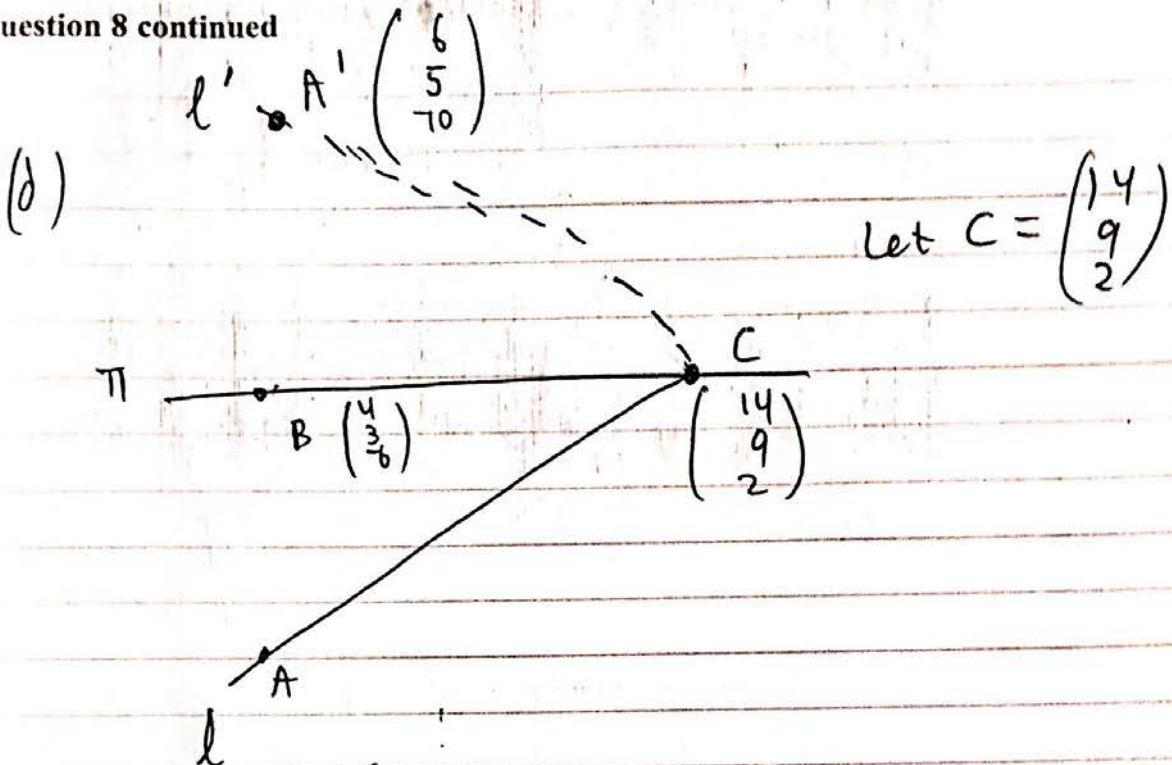 uestion 8 continued
l' A' (6 5 -10)
(d)
Let C = (14 9 2)
C
π
B (4 3 -6)
(14 9 2)
A
l